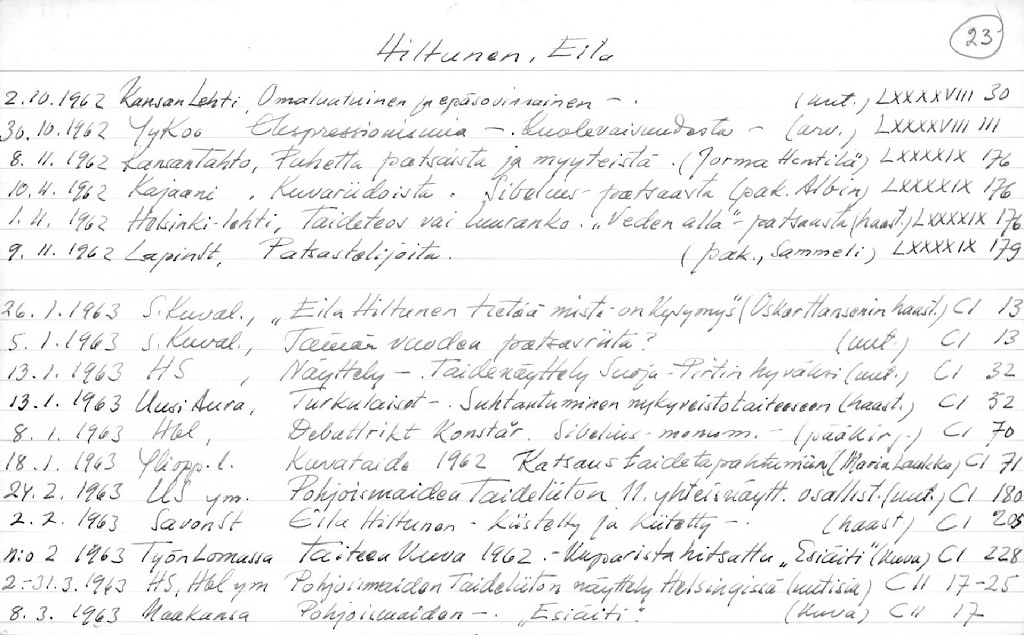 23
Hiltunen, Eila
2.10.1962 KansanLehti, Omalaatuinen ja epäsovinnainen -. (uut.) LXXXXVIII 30
30.10.1962 JyKoo Ekspressionismia -. Kuolevaisuudesta - (arv.) LXXXXVIII 111
8.11.1962 KansanTahto, Puhetta patsaista ja myyteistä. (Jorma Hentilä) LXXXXIX 176
10.11.1962 Kajaani, Kuvariidoista. Sibelius-patsaasta (pak. Albin) LXXXXIX 176
1.11.1962 Helsinki-lehti, Taideteos vai luuranko. "Veden alla"-patsaasta (haast.) LXXXXIX 176
9.11.1962 LapinSt, Patsastelijoita. (pak., Sammeli) LXXXXIX 179
26.1.1963 S.Kuval., "Eila Hiltunen tietää mistä on kysymys" (Oskar Hansenin haast.) CI 13
5.1.1963 S.Kuval., Tämän vuoden patsasriita? (uut.) CI 13
13.1.1963 HS, Näyttely -. Taidenäyttely Suoja-Pirtin hyväksi (uut.) CI 32
13.1.1963 Uusi Aura, Turkulaiset -. Suhtautuminen nykyveistotaiteeseen (haast.) CI 32
8.1.1963 Hbl, Debattrikt Konstår. Sibelius-monum. - (pääkirj.) CI 70
18.1.1963 Yliopp.l. Kuvataide 1962 Katsaus taidetapahtumiin (Maria Laukka) CI 71
24.2.1963 US ym. Pohjoismaiden Taideliiton 11. yhteisnäytt. osallist. (uut.) CI 180
2.2.1963 SavonSt Eila Hiltunen - Kiistelty ja Kiitetty -. (haast) CI 205
n:o 2 1963 TyönLomassa Taiteen Kuva 1962. - Kuparista hitsattu "Esiäiti" (Kuva) CI 228
2-31.3.1963 HS, Hbl ym Pohjoismaiden Taideliiton näyttely Helsingissä (uutisia) CII 17-25
8.3.1963 Maakansa Pohjoismaiden -. "Esiäiti". (kuva) CII 17